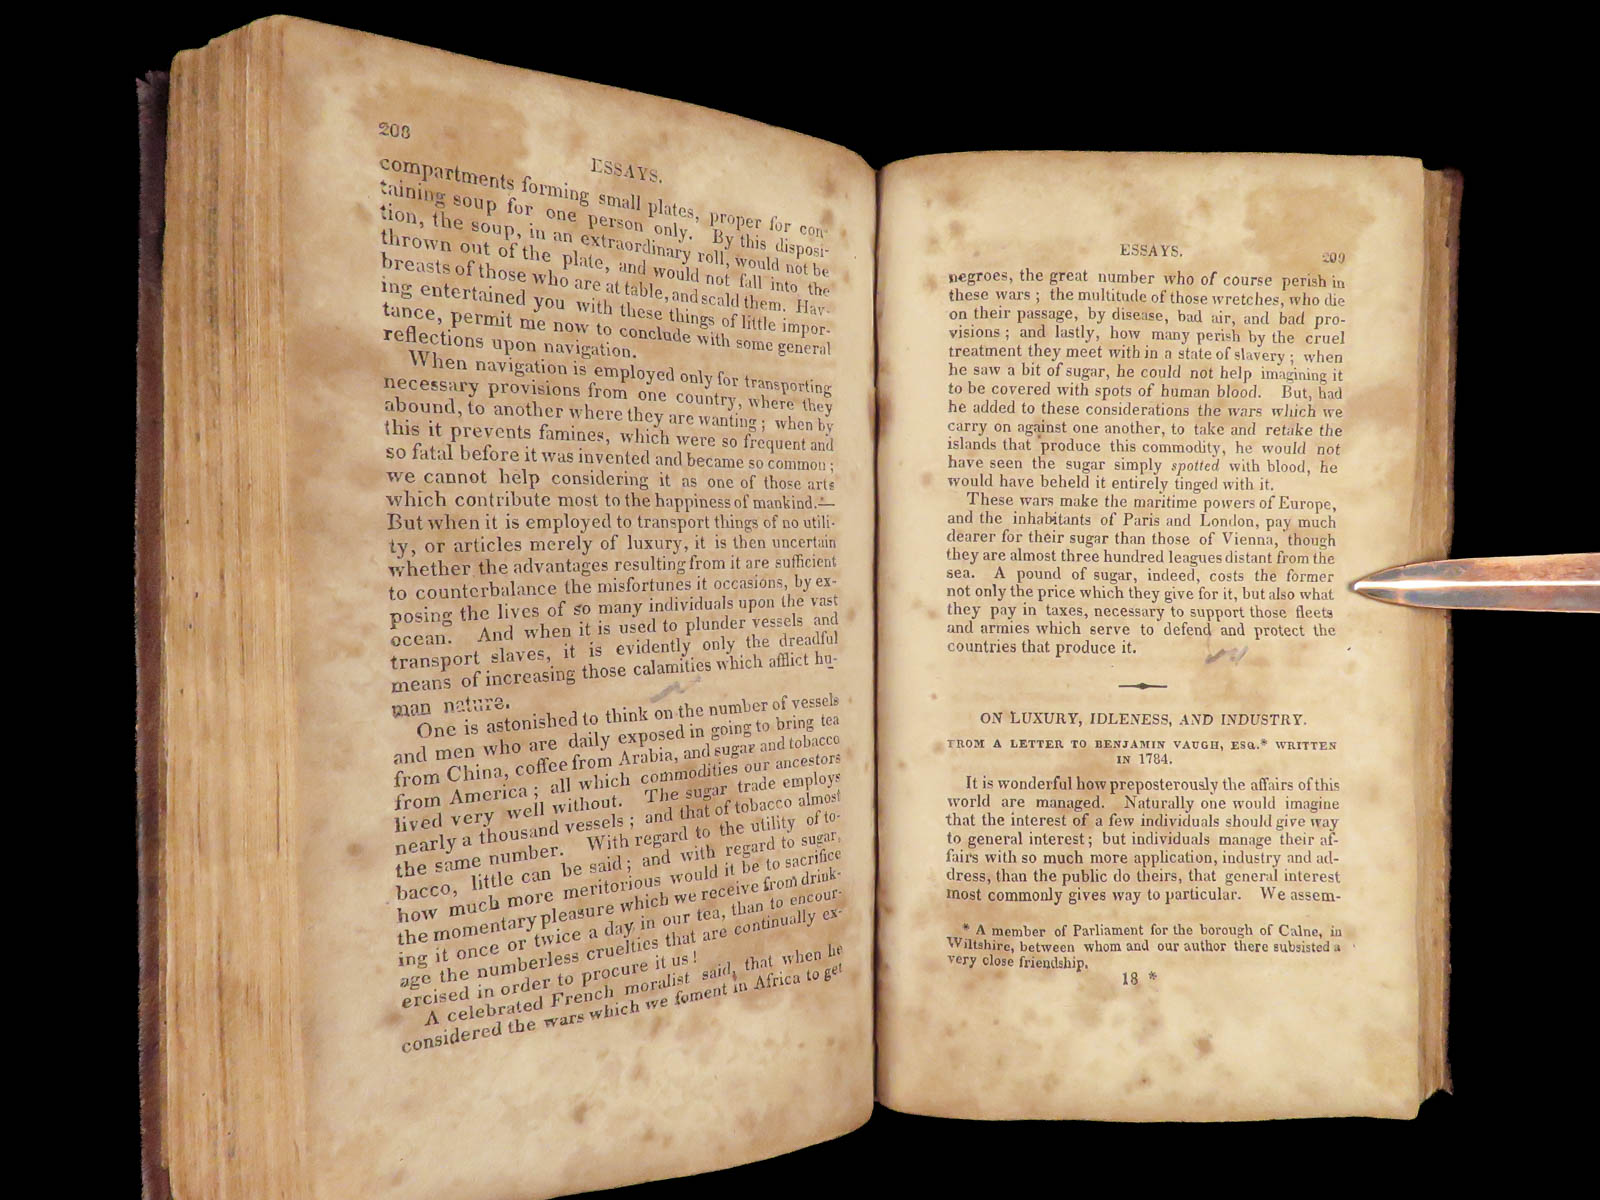 208
ESSAYS.
compartments forming small plates, proper for con-
taining soup for one person only. By this disposi-
tion, the soup, in an extraordinary roll, would not be
thrown out of the plate, and would not fall into the
breasts of those who are at table, and scald them. Hav-
ing entertained you with these things of little impor-
tance, permit me now to conclude with some general
reflections upon navigation.
When navigation is employed only for transporting
necessary provisions from one country, where they
abound, to another where they are wanting; when by
this it prevents famines, which were so frequent and
so fatal before it was invented and became so common;
we cannot help considering it as one of those arts
which contribute most to the happiness of mankind.—
But when it is employed to transport things of no utili-
ty, or articles merely of luxury, it is then uncertain
whether the advantages resulting from it are sufficient
to counterbalance the misfortunes it occasions, by ex-
posing the lives of so many individuals upon the vast
ocean. And when it is used to plunder vessels and
transport slaves, it is evidently only the dreadful
means of increasing those calamities which afflict hu-
man nature.
One is astonished to think on the number of vessels
and men who are daily exposed in going to bring tea
from China, coffee from Arabia, and sugar and tobacco
from America; all which commodities our ancestors
lived very well without. The sugar trade employs
nearly a thousand vessels; and that of tobacco almost
the same number. With regard to the utility of to-
bacco, little can be said; and with regard to sugar,
how much more meritorious would it be to sacrifice
the momentary pleasure which we receive from drink-
ing it once or twice a day in our tea, than to encour-
age the numberless cruelties that are continually ex-
ercised in order to procure it us!
A celebrated French moralist said, that when he
considered the wars which we foment in Africa to get
ESSAYS.
209
negroes, the great number who of course perish in
these wars; the multitude of those wretches, who die
on their passage, by disease, bad air, and bad pro-
visions; and lastly, how many perish by the cruel
treatment they meet with in a state of slavery; when
he saw a bit of sugar, he could not help imagining it
to be covered with spots of human blood. But, had
he added to these considerations the wars which we
carry on against one another, to take and retake the
islands that produce this commodity, he would not
have seen the sugar simply spotted with blood, he
would have beheld it entirely tinged with it.
These wars make the maritime powers of Europe,
and the inhabitants of Paris and London, pay much
dearer for their sugar than those of Vienna, though
they are almost three hundred leagues distant from the
sea. A pound of sugar, indeed, costs the former
not only the price which they give for it, but also what
they pay in taxes, necessary to support those fleets
and armies which serve to defend and protect the
countries that produce it.
ON LUXURY, IDLENESS, AND INDUSTRY.
FROM A LETTER TO BENJAMIN VAUGH, ESQ.* WRITTEN
IN 1784.
It is wonderful how preposterously the affairs of this
world are managed. Naturally one would imagine
that the interest of a few individuals should give way
to general interest; but individuals manage their af-
fairs with so much more application, industry and ad-
dress, than the public do theirs, that general interest
most commonly gives way to particular. We assem-
* A member of Parliament for the borough of Calne, in
Wiltshire, between whom and our author there subsisted a
very close friendship.
18 *